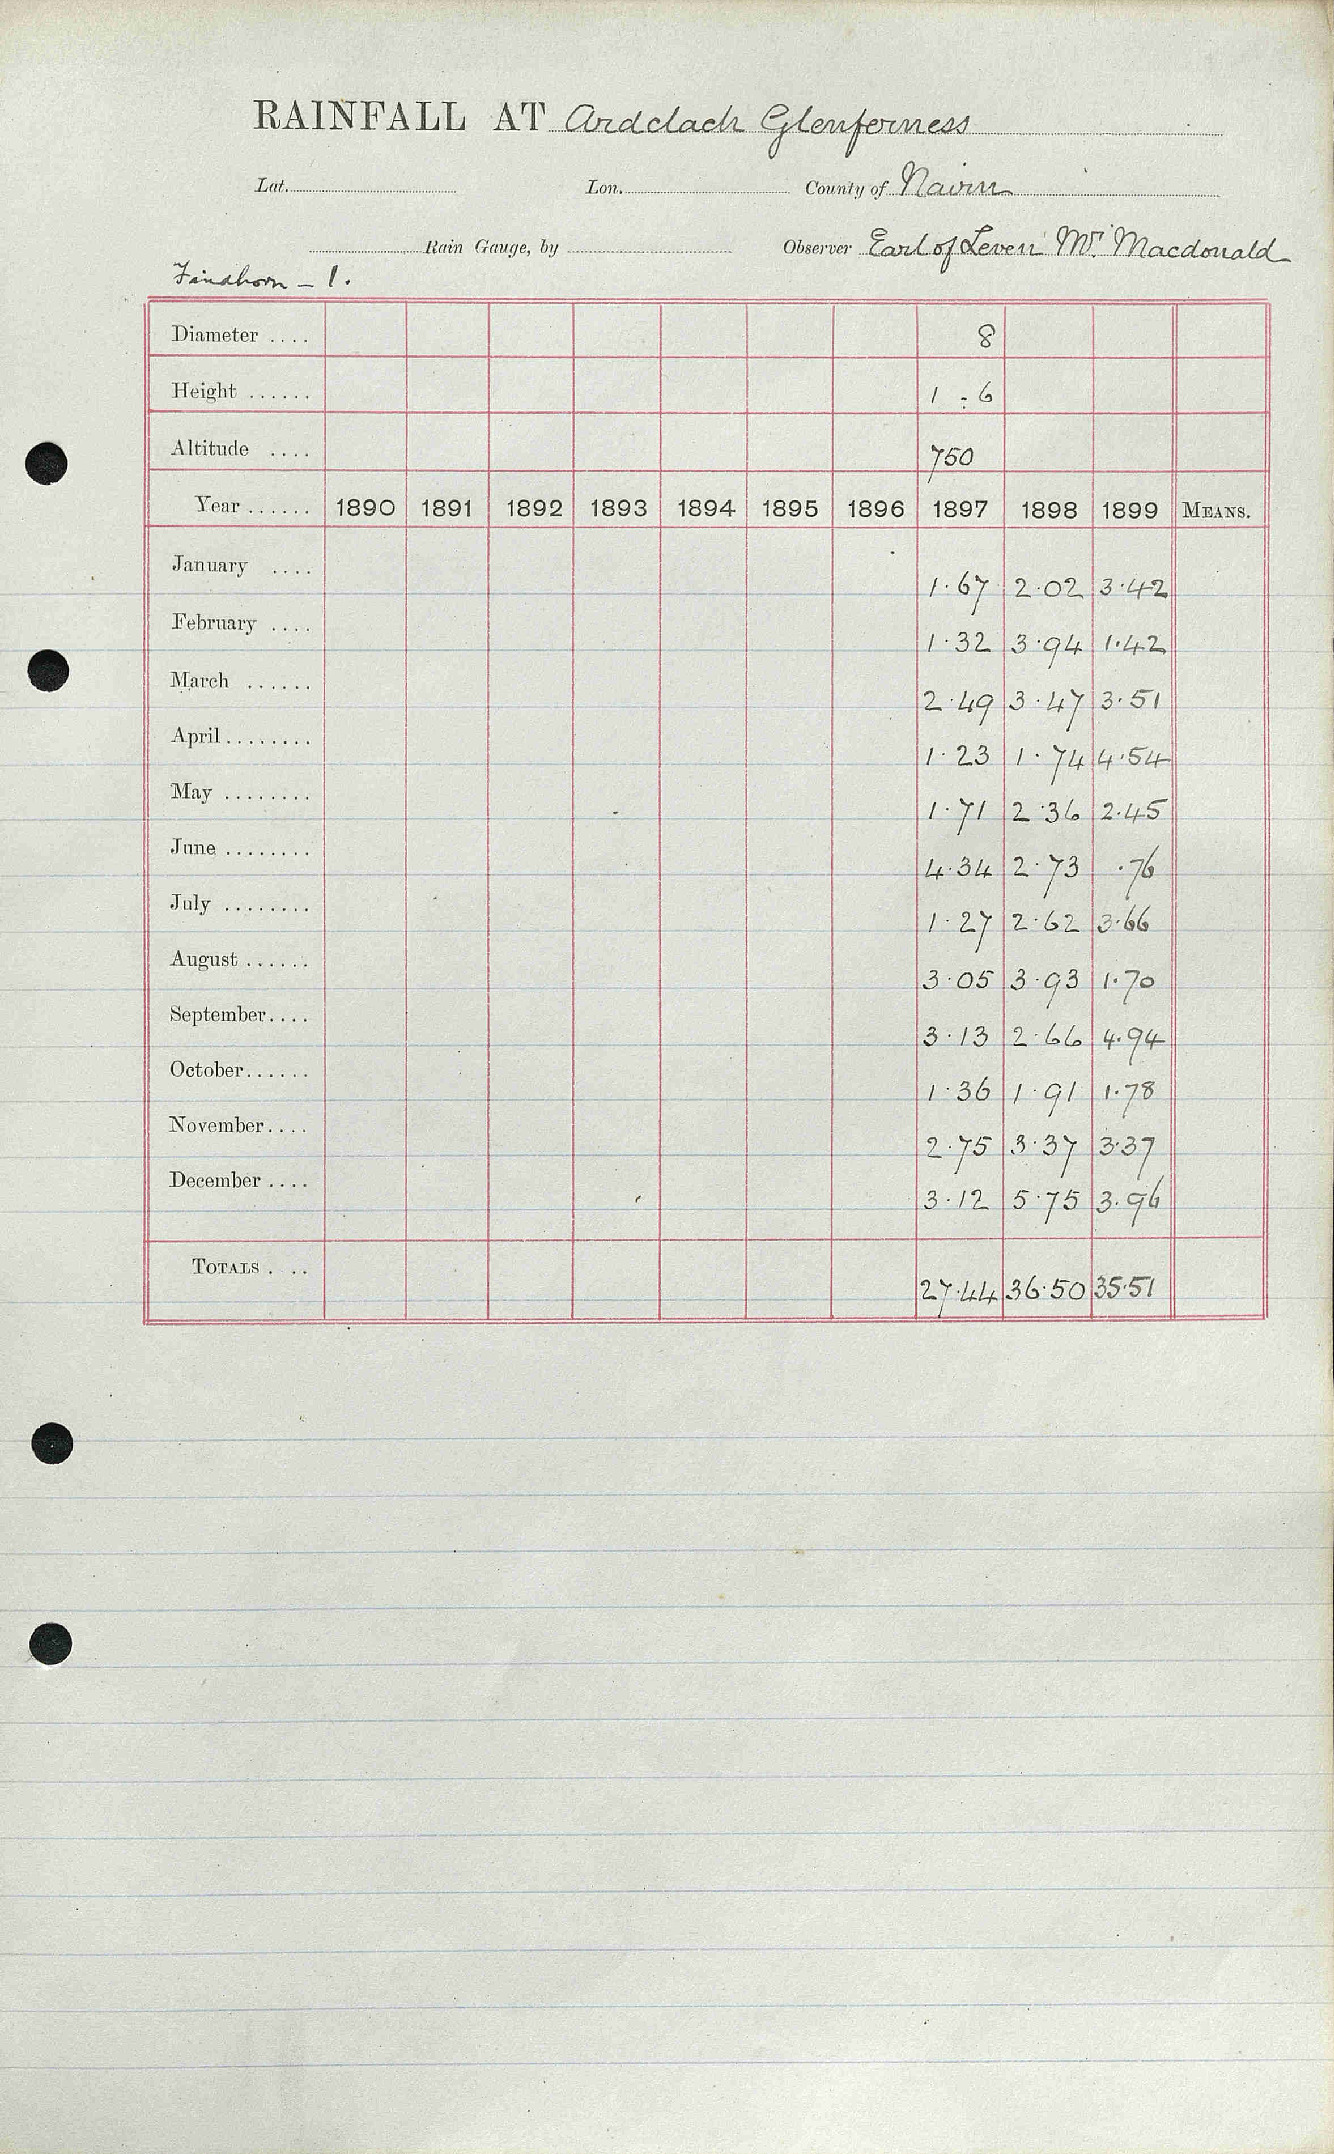 RAINFALL AT Ardclach Glenferness
Lat. Lon. County of Nairn
Rain Gauge, by Observer Earl of Leven Mr. Macdonald
Findhorn - 1.
Diameter .... 8
Height ...... 1 - 6
Altitude .... 750
Year ...... 1890 1891 1892 1893 1894 1895 1896 1897 1898 1899 MEANS.
January .... 1.67 2.02 3.42
February .... 1.32 3.94 1.42
March ...... 2.49 3.47 3.51
April ........ 1.23 1.74 4.54
May ........ 1.71 2.36 2.45
June ........ 4.34 2.73 .76
July ........ 1.27 2.62 3.66
August ...... 3.05 3.93 1.70
September .... 3.13 2.66 4.94
October ...... 1.36 1.91 1.78
November .... 2.75 3.37 3.37
December .... 3.12 5.75 3.96
TOTALS . .. 27.44 36.50 35.51